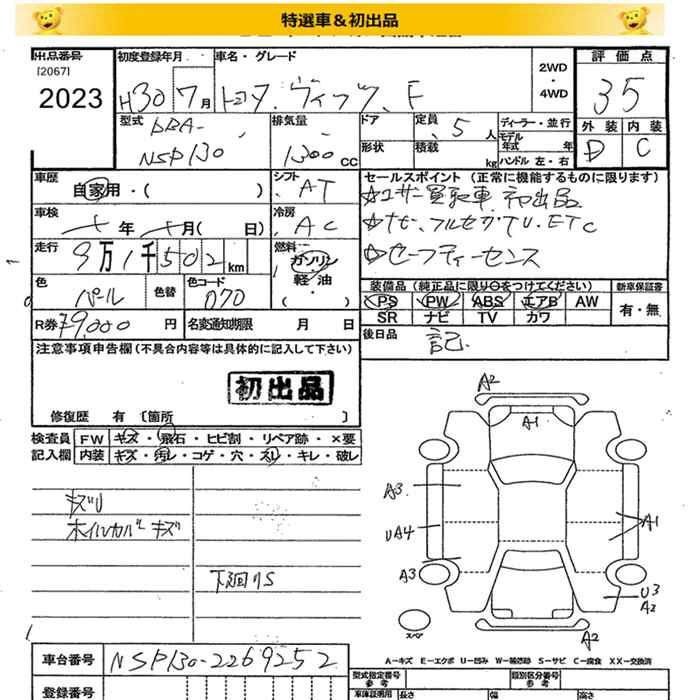 特選車＆初出品
出品番号 初度登録年月 車名・グレード 2WD ・ 4WD 評価点
[2067]
2023 H30 7月 トヨタ ヴィッツ F 35
型式 排気量 ドア 定員 ディーラー・並行 外装 内装
DBA- 5人 モデル年式 年 D C
NSP130 1300cc 形状 積載 kg ハンドル 左・右
車歴 シフト セールスポイント (正常に機能するものに限ります)
自家用・( ) AT ☆ユーザー買取車 初出品
車検 冷房 ☆ナビ、フルセグTV、ETC
年 月( 日) AC
走行 燃料 ☆セーフティーセンス
9万1千502km ガソリン・軽油・( )
色 色替 色コード 装備品 (純正品に限り○をつけてください) 新車保証書
パール 070 PS PW ABS エアB AW 有・無
SR ナビ TV カワ
R券 ¥9000円 名変通知期限 月 日 後日品 記
注意事項申告欄 (不具合内容等は具体的に記入して下さい)
初出品
修復歴 有 [箇所 ]
検査員 FW キズ・飛石・ヒビ割・リペア跡・×要
記入欄 内装 キズ・汚レ・コゲ・穴・スレ・キレ・破レ
キズU
ホイルカバーキズ
下廻りS
A2
A1
A3
A1
UA4
A3
U3
A2
A2
スペア
A－キズ E－エクボ U－凹み W－補修跡 S－サビ C－腐食 XX－交換済
車台番号 NSP130-2269252 型式指定番号 参考 類別区分番号 参考
登録番号 車庫証明用 長さ 幅 高さ